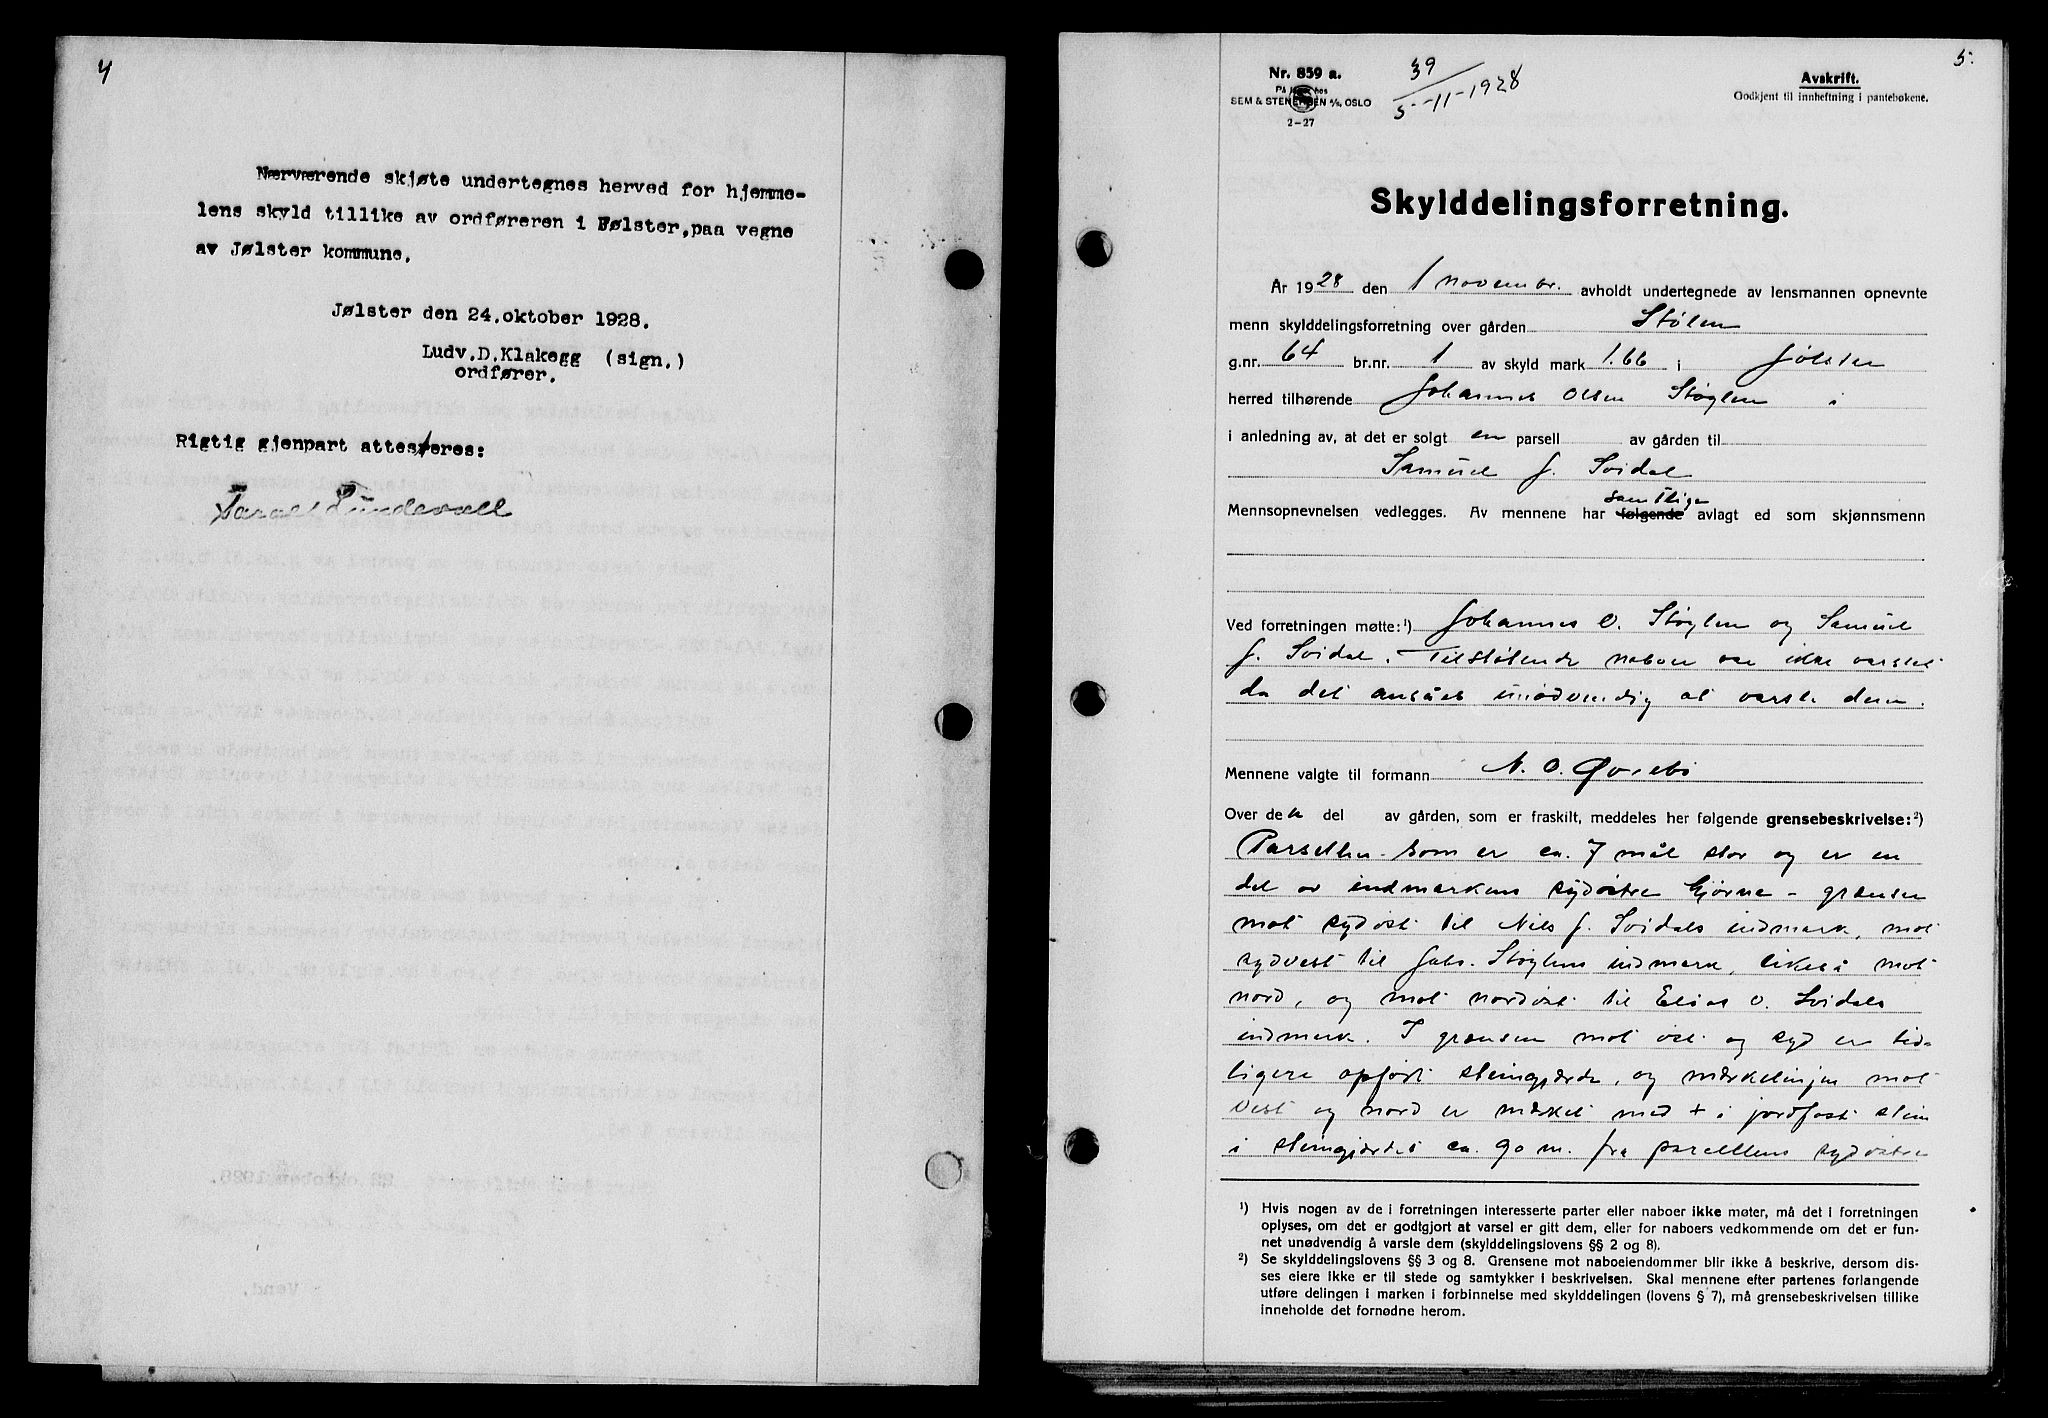 4
Nærværende skjøte undertegnes herved for hjemme-
lens skyld tillike av ordføreren i Følster, paa vegne
av Jølster kommune.
Jølster den 24. oktober 1928.
Ludv. D. Klakegg (sign.)
ordfører.
Rigtig gjenpart attesteres:
Sundevall
5.
Nr. 859 a.
På lager hos
SEM & STENERSEN A/S, OSLO
2-27
39
5-11-1928
Avskrift.
Godkjent til innheftning i pantebøkene.
Skylddelingsforretning.
År 1928 den 1 novembr. avholdt undertegnede av lensmannen opnevnte
menn skylddelingsforretning over gården Stølen
g.nr. 64 br.nr. 1 av skyld mark 1.66 i Jølster
herred tilhørende Johannes Olsen Støylen i
i anledning av, at det er solgt en parsell av gården til
Samuel J. Svidal
samtlige
Mennsopnevnelsen vedlegges. Av mennene har følgende avlagt ed som skjønnsmenn
Ved forretningen møtte: ¹) Johannes O. Støylen og Samuel
J. Svidal. Tilstøtende naboer var ikke varslet
da det ansåes unødvendig at varsle dem.
Mennene valgte til formann N. O. Øvrebö
Over den del av gården, som er fraskilt, meddeles her følgende grensebeskrivelse: ²)
Parsellen - som er ca. 7 mål stor og er en
del av indmarkens sydöstre hjørne - grænser
mot sydöst til Nils J. Svidals indmark, mot
sydvest til Johs. Støylens indmark, likeså mot
nord, og mot nordöst til Elias O. Svidals
indmark. I grænsen mot öst og syd er tid-
ligere opfört steingjærde, og merkelinjen mot
vest og nord er merket med + i jordfast stein
i steingjærdet ca. 90 m. fra parcellens sydöstre
¹) Hvis nogen av de i forretningen interesserte parter eller naboer ikke møter, må det i forretningen
oplyses, om det er godtgjort at varsel er gitt dem, eller for naboers vedkommende om det er fun-
net unødvendig å varsle dem (skylddelingslovens §§ 2 og 8).
²) Se skylddelingslovens §§ 3 og 8. Grensene mot naboeiendommer blir ikke å beskrive, dersom dis-
ses eiere ikke er til stede og samtykker i beskrivelsen. Skal mennene efter partenes forlangende
utføre delingen i marken i forbinnelse med skylddelingen (lovens § 7), må grensebeskrivelsen tillike
inneholde det fornødne herom.